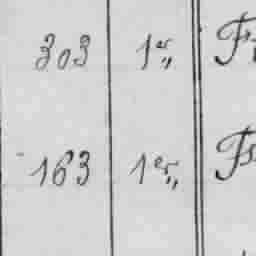 303 1er,,
163 1er,,